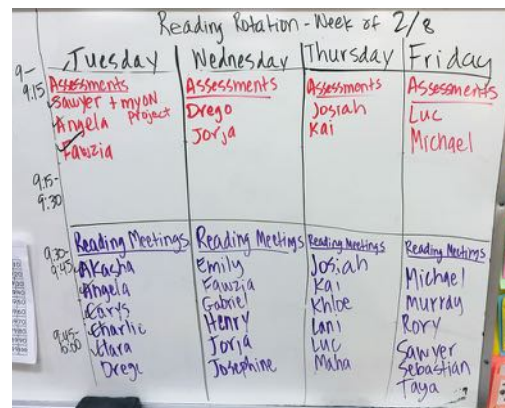 Reading Rotation - Week of 2/8
Tuesday Wednesday Thursday Friday
9-
9:15
Assessments
Sawyer + myON
project
Angela
Fawzia
Assessments
Drego
Jorja
Assessments
Josiah
Kai
Assessments
Luc
Michael
9:15-
9:30
9:30-
9:45
9:45-
10:00
Reading Meetings
Akasha
Angela
Carys
Charlie
Clara
Drego
Reading Meetings
Emily
Fawzia
Gabriel
Henry
Jorja
Josephine
Reading Meetings
Josiah
Kai
Khloe
Lani
Luc
Maha
Reading Meetings
Michael
Murray
Rory
Sawyer
Sebastian
Taya